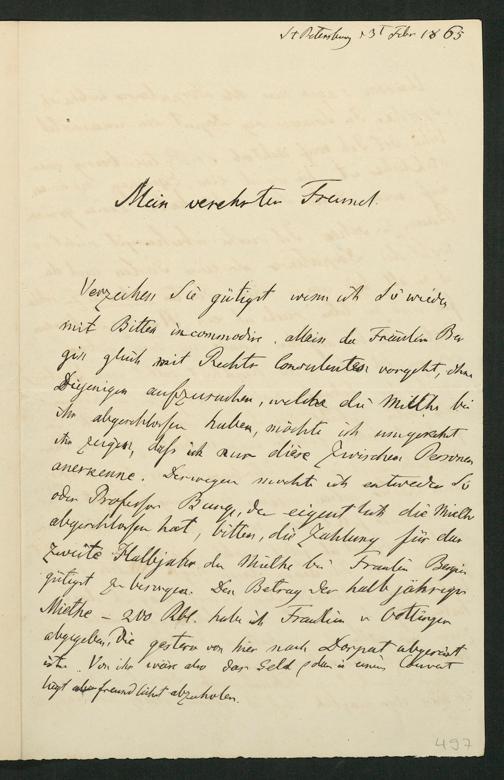 St Petersburg 13t Febr 1865
Mein verehrter Freund.
Verzeihen Sie gütigst wenn ich Sie wieder
mit Bitten incommodire. Allein da Fräulein Ba-
gir gleich mit Rechts Consulenten vorgeht, ohne
Diejenigen aufzusuchen, welche die Miethe bei
ihr abgeschlossen haben, möchte ich umgekehrt
ihr zeigen, daß ich nur diese Zwischen Personen
anerkenne. Deswegen möchte ich entweder Sie
oder Professor Bunge, der eigentlich die Miethe
abgeschlossen hat, bitten, die Zahlung für das
zweite Halbjahr der Miethe bei Fräulein Bagir
gütigst zu besorgen. Den Betrag der halbjährigen
Miethe – 200 Rbl. habe ich Fräulein v Oettingen
abgegeben, die gestern von hier nach Dorpat abgereist
ist. Von ihr wäre also das Geld, das in einem Couvert
liegt freundlichst abzuholen.
497